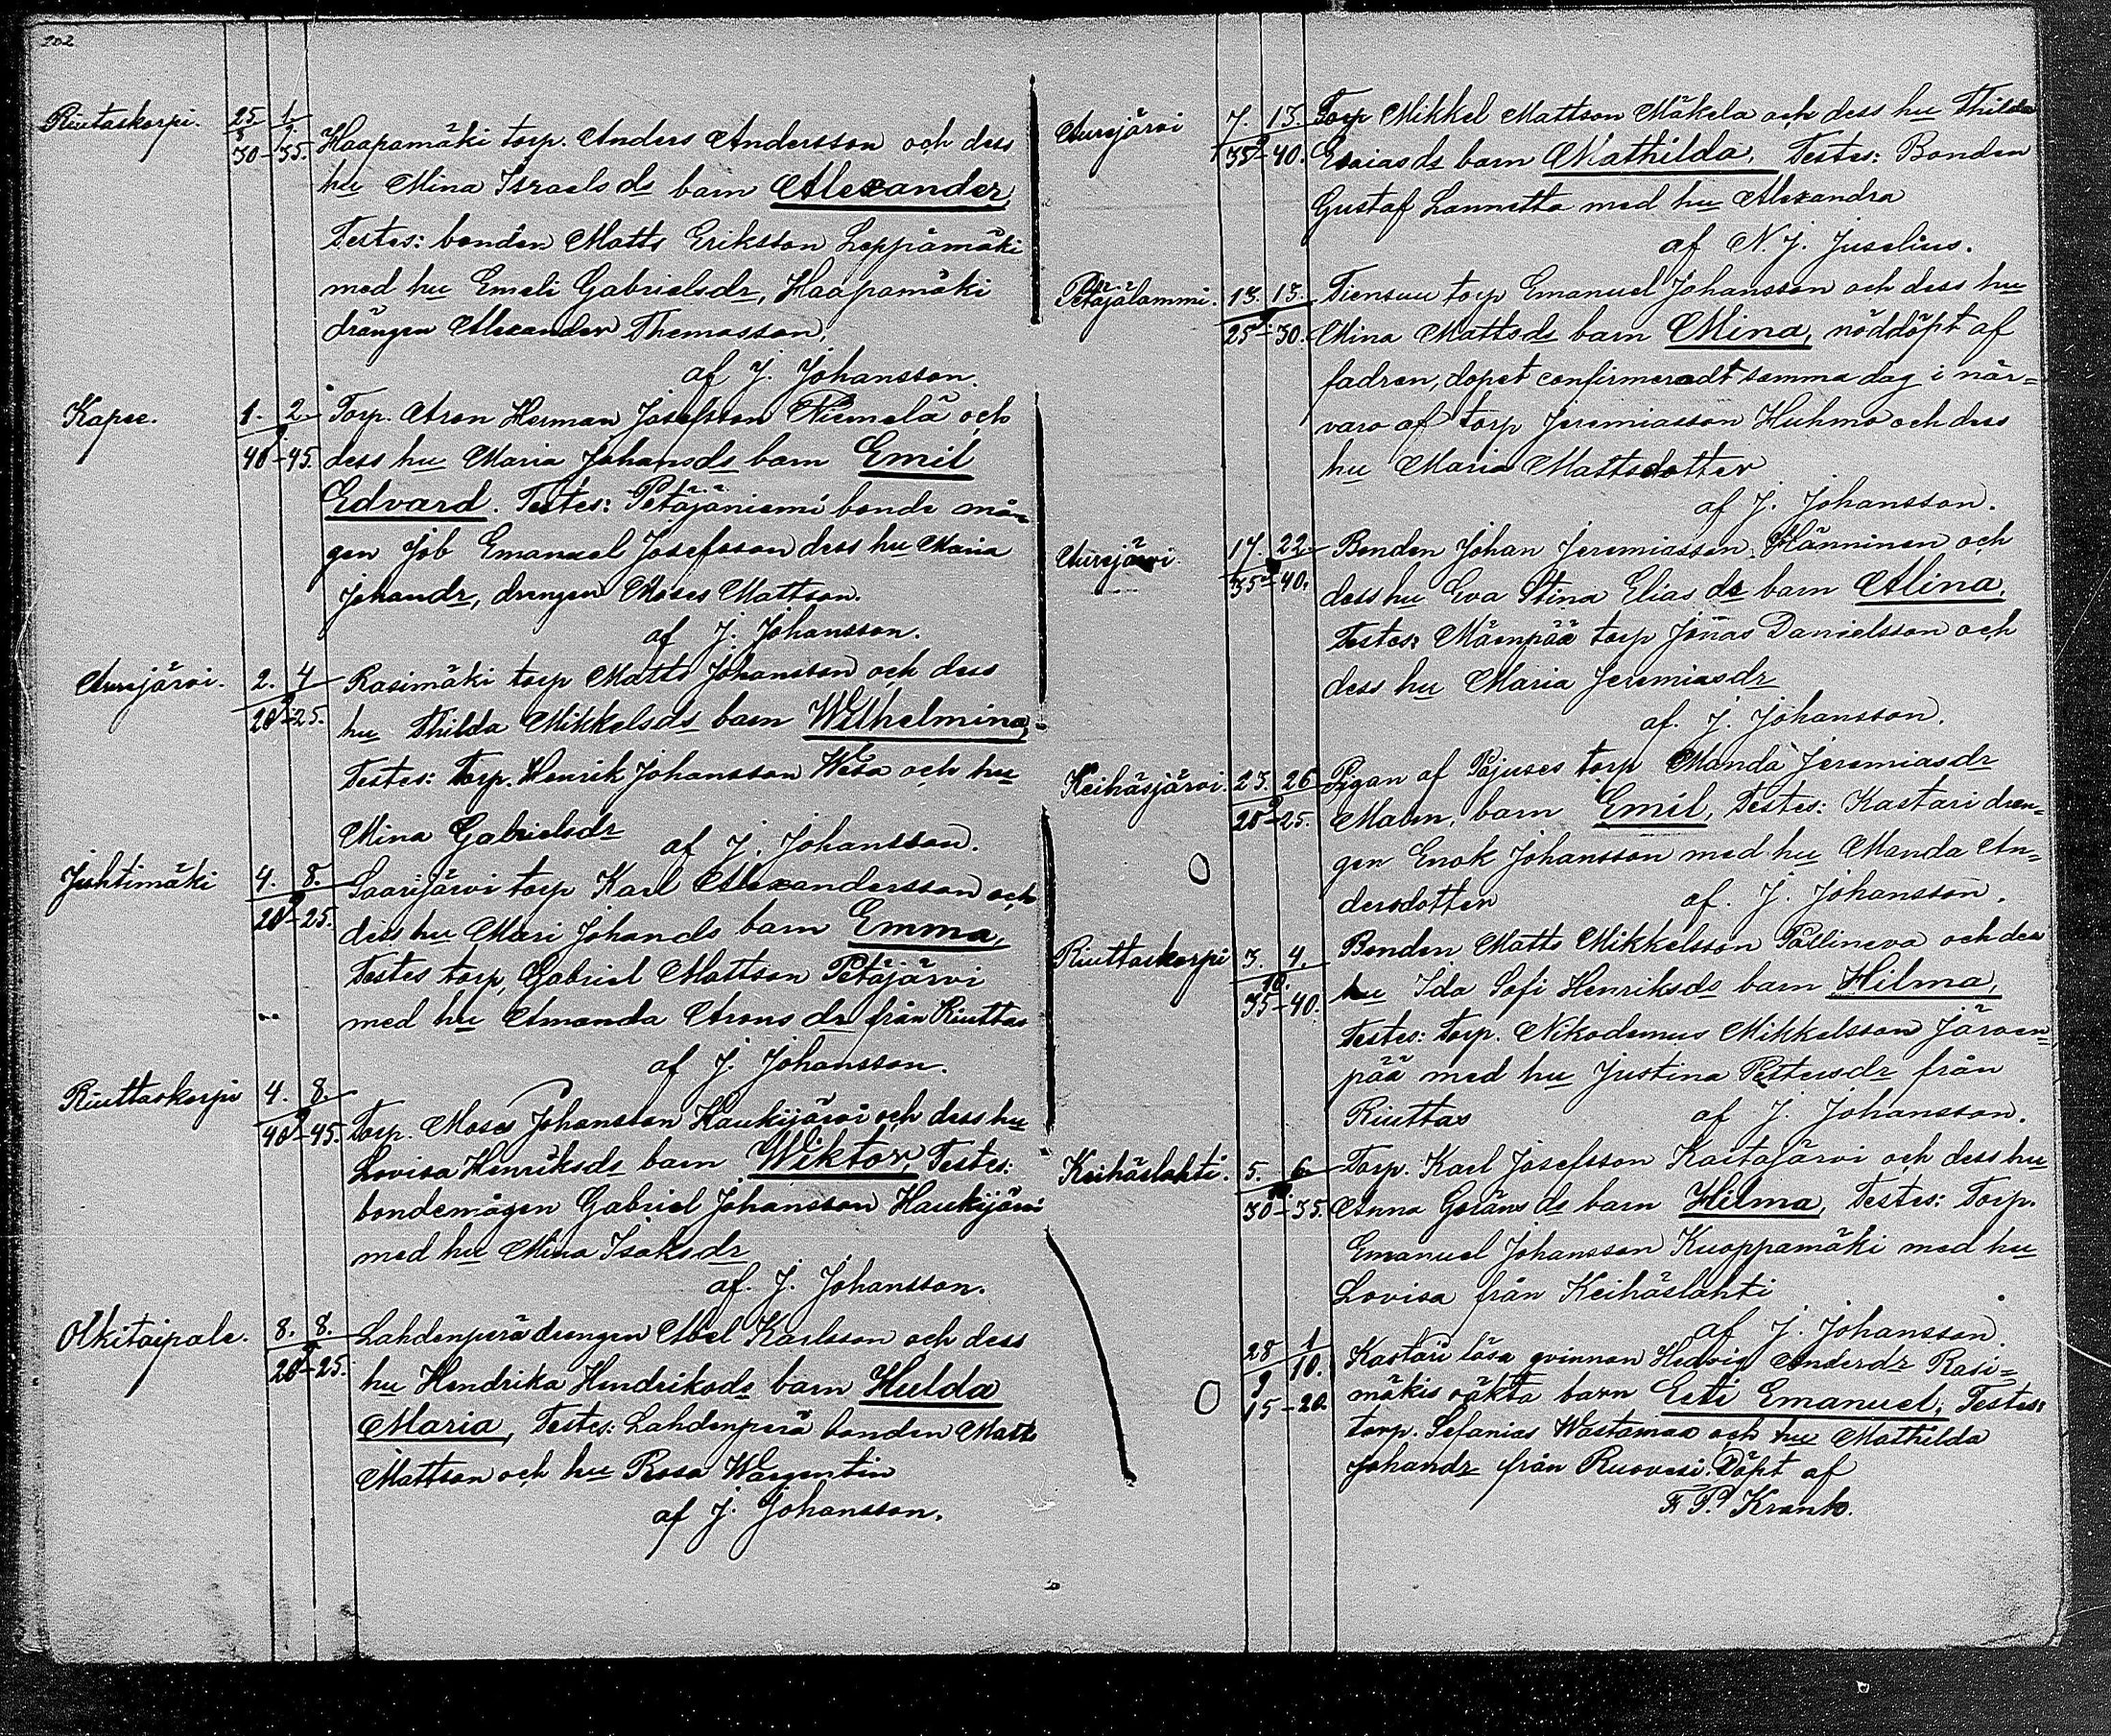 202
Riutaskorpi. 25/8 1/9 Haapamäki torp. Anders Andersson och dess
30-35. hu Mina Israelsds barn Alexander,
Testes: bonden Matts Eriksson Leppämäki
med hu Emeli Gabrielsdr, Haapamäki
drängen Alexander Thomasson,
af J. Johansson.
Kapee. 1. 2. Torp. Aron Herman Josefsson Niemelä och
9
40-45. dess hu Maria Johansds barn Emil
Edvard. Testes: Petäjäniemi bonde må-
gen Job Emanuel Josefsson dess hu Maria
Johandr, drengen Moses Mattson.
af J. Johansson.
Aurejärvi. 2. 4 Rasimäki torp Matts Johansson och dess
9
20-25. hu Thilda Mikkelsds barn Wilhelmina,
Testes: Torp. Henrik Johansson Wesa och hu
Mina Gabrielsdr af J. Johansson.
Juhtimäki 4. 8. Saarijärvi torp Karl Alexandersson och
9
20-25. dess hu Mari Johands barn Emma,
Testes torp, Gabriel Mattson Petäjärvi
med hu Amanda Arons dr från Riuttas
af J. Johansson.
Riuttaskorpi 4. 8.
9
40-45. Torp. Moses Johansson Haukijärvi och dess hu
Lovisa Henriksds barn Wiktor, Testes:
bondemågen Gabriel Johansson Haukijärvi
med hu Mina Isaksdr
af. J. Johansson.
Olkitaipale. 8. 8. Lahdenperä drengen Abel Karlsson och dess
9
20-25. hu Hendrika Hendriksds barn Hulda
Maria, Testes: Lahdenperä bonden Matts
Mattson och hu Rosa Wargentin
af J. Johansson.
Aurejärvi 7. 13. Torp Mikkel Mattson Mäkela och dess hu Thilda
9
35-40. Esaiasds barn Mathilda, Testes: Bonden
Gustaf Lannetta med hu Alexandra
af N. J. Juselius.
Petäjälammi. 13. 13. Tiensuu torp Emanuel Johansson och dess hu
9
25-30. Mina Mattsds barn Mina, nöddöpt af
fadren, dopet confirmeradt samma dag i när=
varo af torp Jeremiasson Huhmo och dess
hu Maria Mattsdotter
af J. Johansson.
Aurejärvi. 17. 22. Bonden Johan Jeremiasson Hänninen och
9
35-40. dess hu Eva Stina Elias ds barn Alina,
Testes: Mäenpää torp Jonas Danielsson och
dess hu Maria Jeremiasdr
af. J. Johansson.
Keihäsjärvi. 23. 26 Pigan af Pajuses torp Manda Jeremiasdr
9
20-25. Malm, barn Emil, Testes: Kastari dren=
gen Enok Johansson med hu Manda An=
dersdotter af. J. Johansson.
Riuttaskorpi 3. 4. Bonden Matts Mikkelsson Pällineva och dess
10.
35-40. hu Ida Sofi Henriksds barn Hilma,
Testes: Torp. Nikodemus Mikkelsson Järven=
pää med hu Justina Pettersdr från
Riuttas af J. Johansson.
Keihäslahti. 5. 6. Torp. Karl Josefsson Kaitajärvi och dess hu
10.
30-35. Anna Görans ds barn Hilma, Testes: Torp.
Emanuel Johansson Kuoppamäki med hu
Lovisa från Keihäslahti
af J. Johansson.
28/9 1/10. Kastari lösa qvinnan Hedvig Andersdr Rasi=
15-20. mäkis oäkta barn Eeti Emanuel, Testes:
torp. Sefanias Wästamaa och hu Mathilda
Johandr från Ruovesi. Döpt af
F. P. Krank.